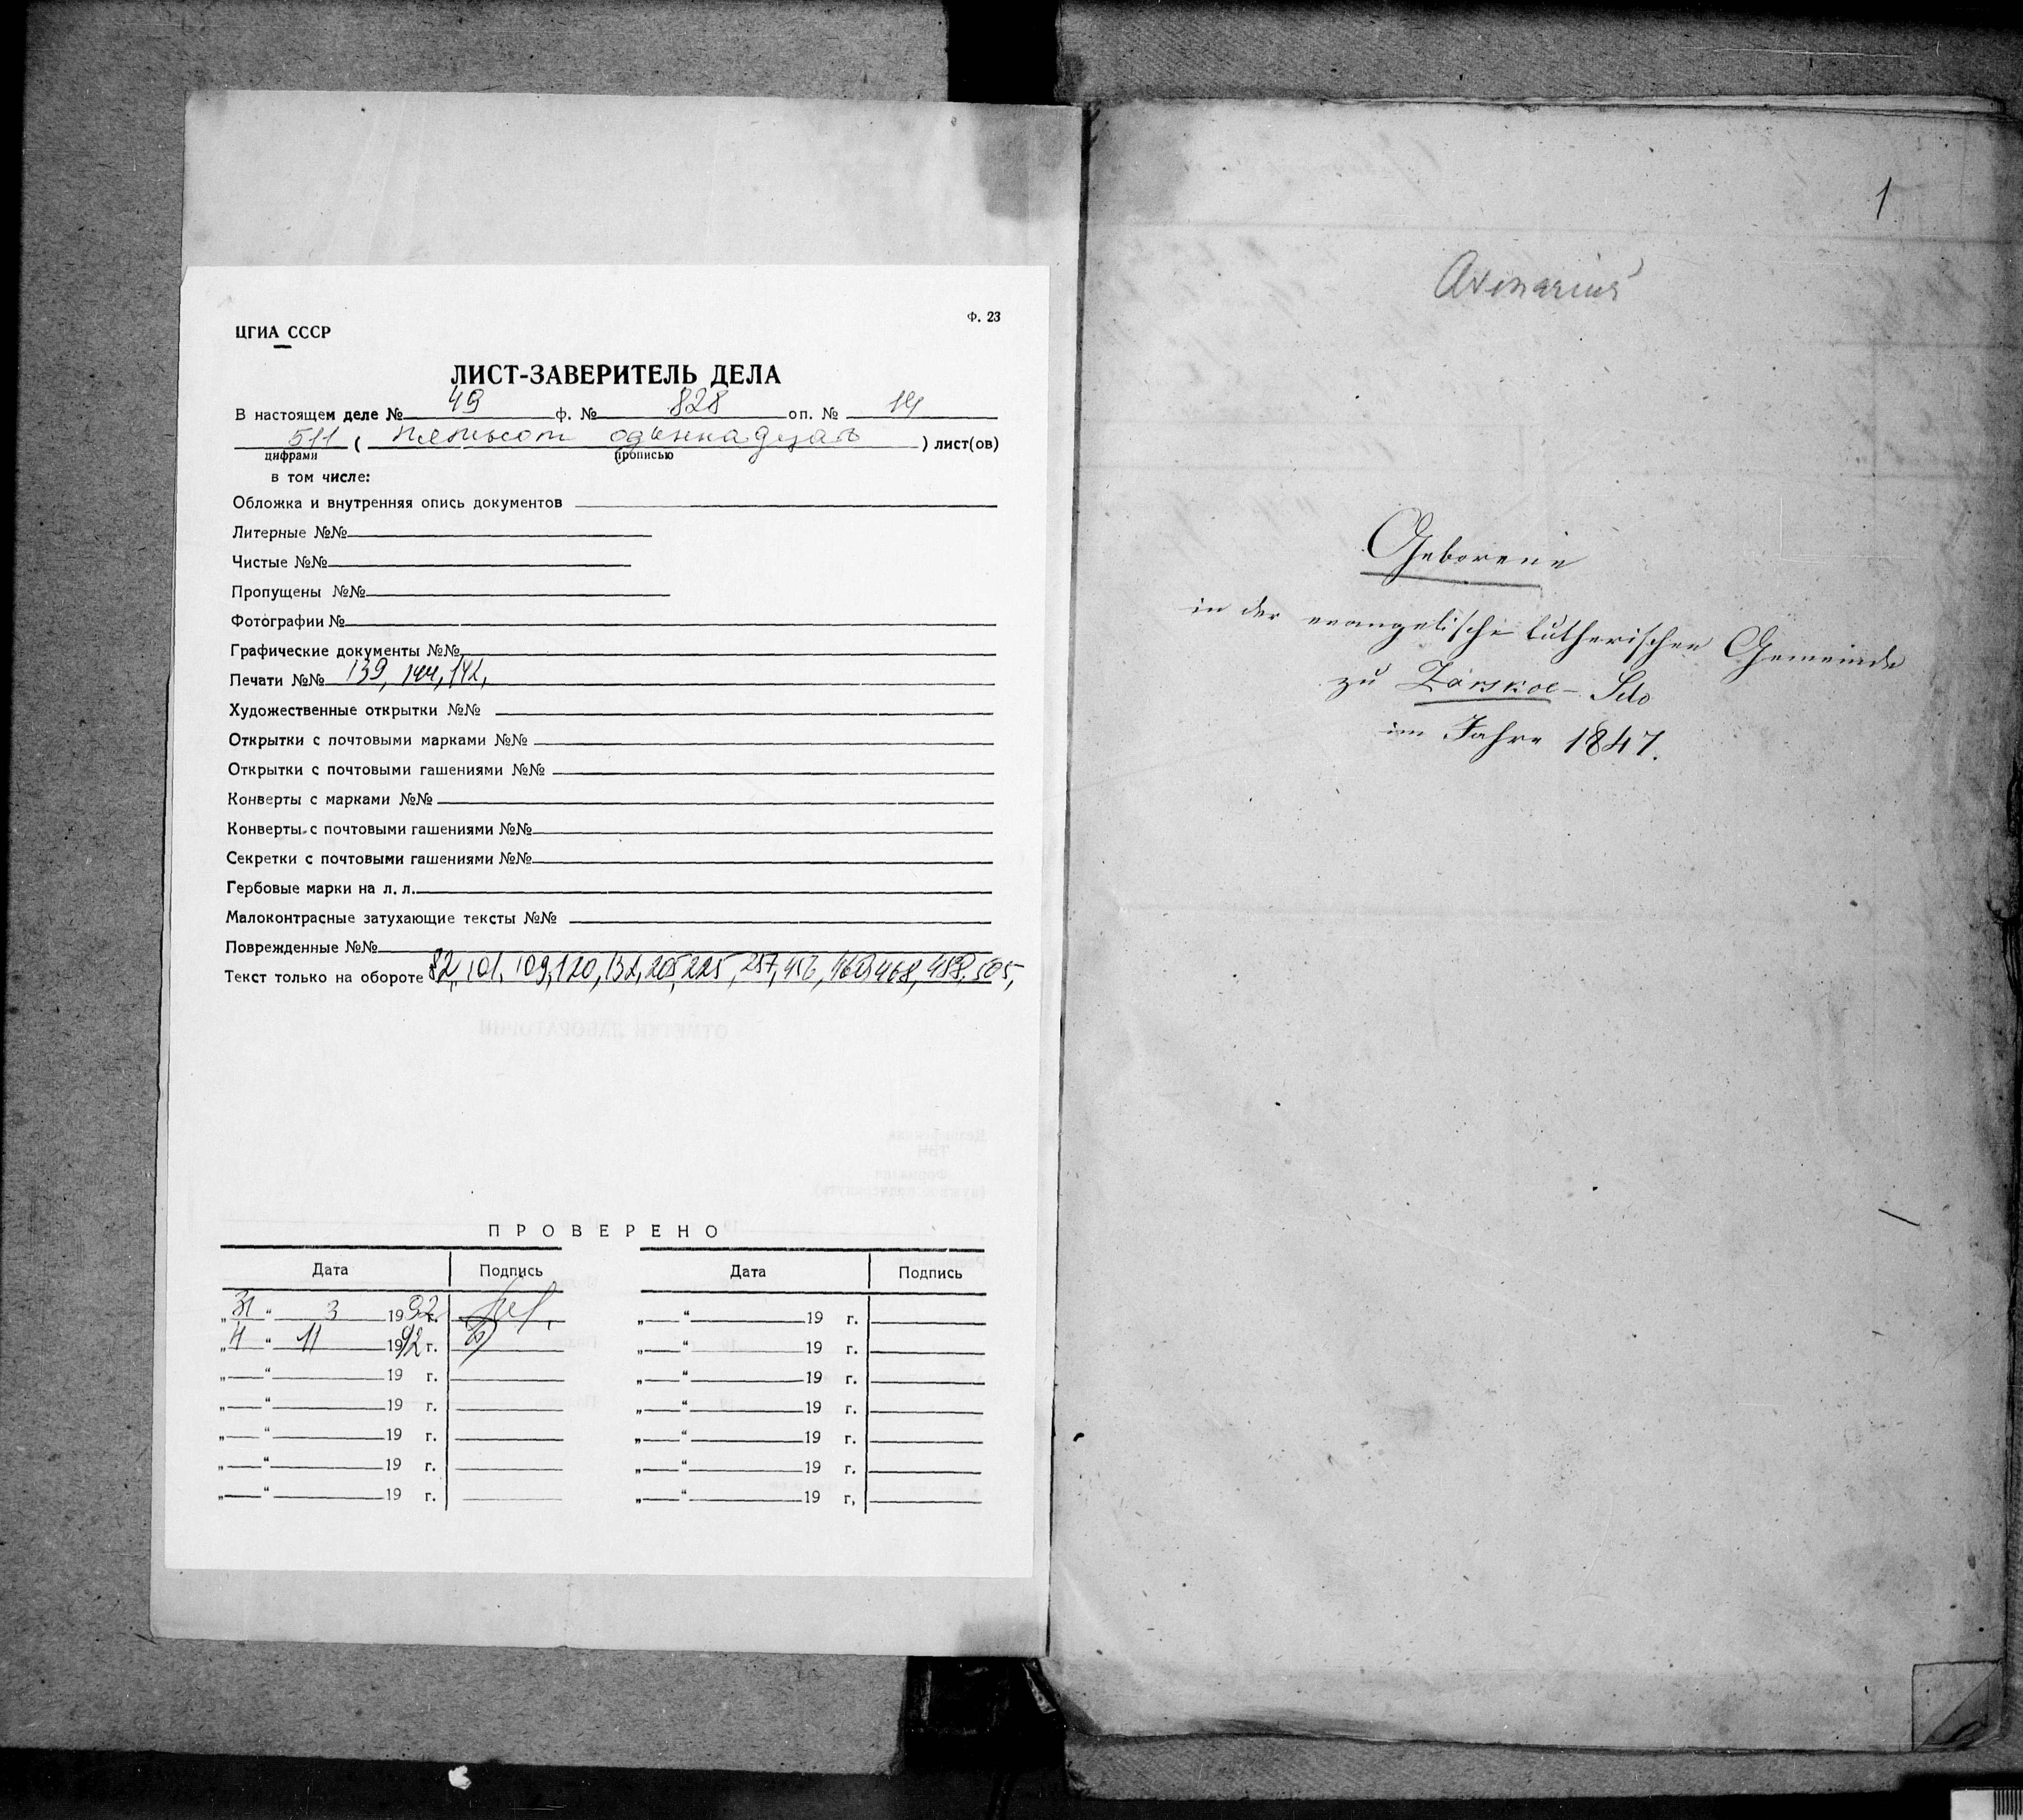 Ф. 23
ЦГИА СССР
ЛИСТ-ЗАВЕРИТЕЛЬ ДЕЛА
В настоящем деле № 49 ф. № 828 оп. № 14
511 ( пятьсот одиннадцать ) лист(ов)
цифрами прописью
в том числе:
Обложка и внутренняя опись документов
Литерные №№
Чистые №№
Пропущены №№
Фотографии №
Графические документы №№
Печати №№ 139, 144, 142,
Художественные открытки №№
Открытки с почтовыми марками №№
Открытки с почтовыми гашениями №№
Конверты с марками №№
Конверты с почтовыми гашениями №№
Секретки с почтовыми гашениями №№
Гербовые марки на л. л.
Малоконтрасные затухающие тексты №№
Поврежденные №№
Текст только на обороте 82, 101, 109, 120, 132, 205, 225, 257, 456, 468, 488, 505,
ПРОВЕРЕНО
Дата Подпись Дата Подпись
„31“ 3 1992 г. „ “ 19 г.
„4“ 11 1992 г. „ “ 19 г.
„ “ 19 г. „ “ 19 г.
„ “ 19 г. „ “ 19 г.
„ “ 19 г. „ “ 19 г.
„ “ 19 г. „ “ 19 г.
„ “ 19 г. „ “ 19 г,
1
Avenarius
Geborene
in der evangelisch-lutherischen Gemeinde
zu Zarskoe-Selo
im Jahre 1847.